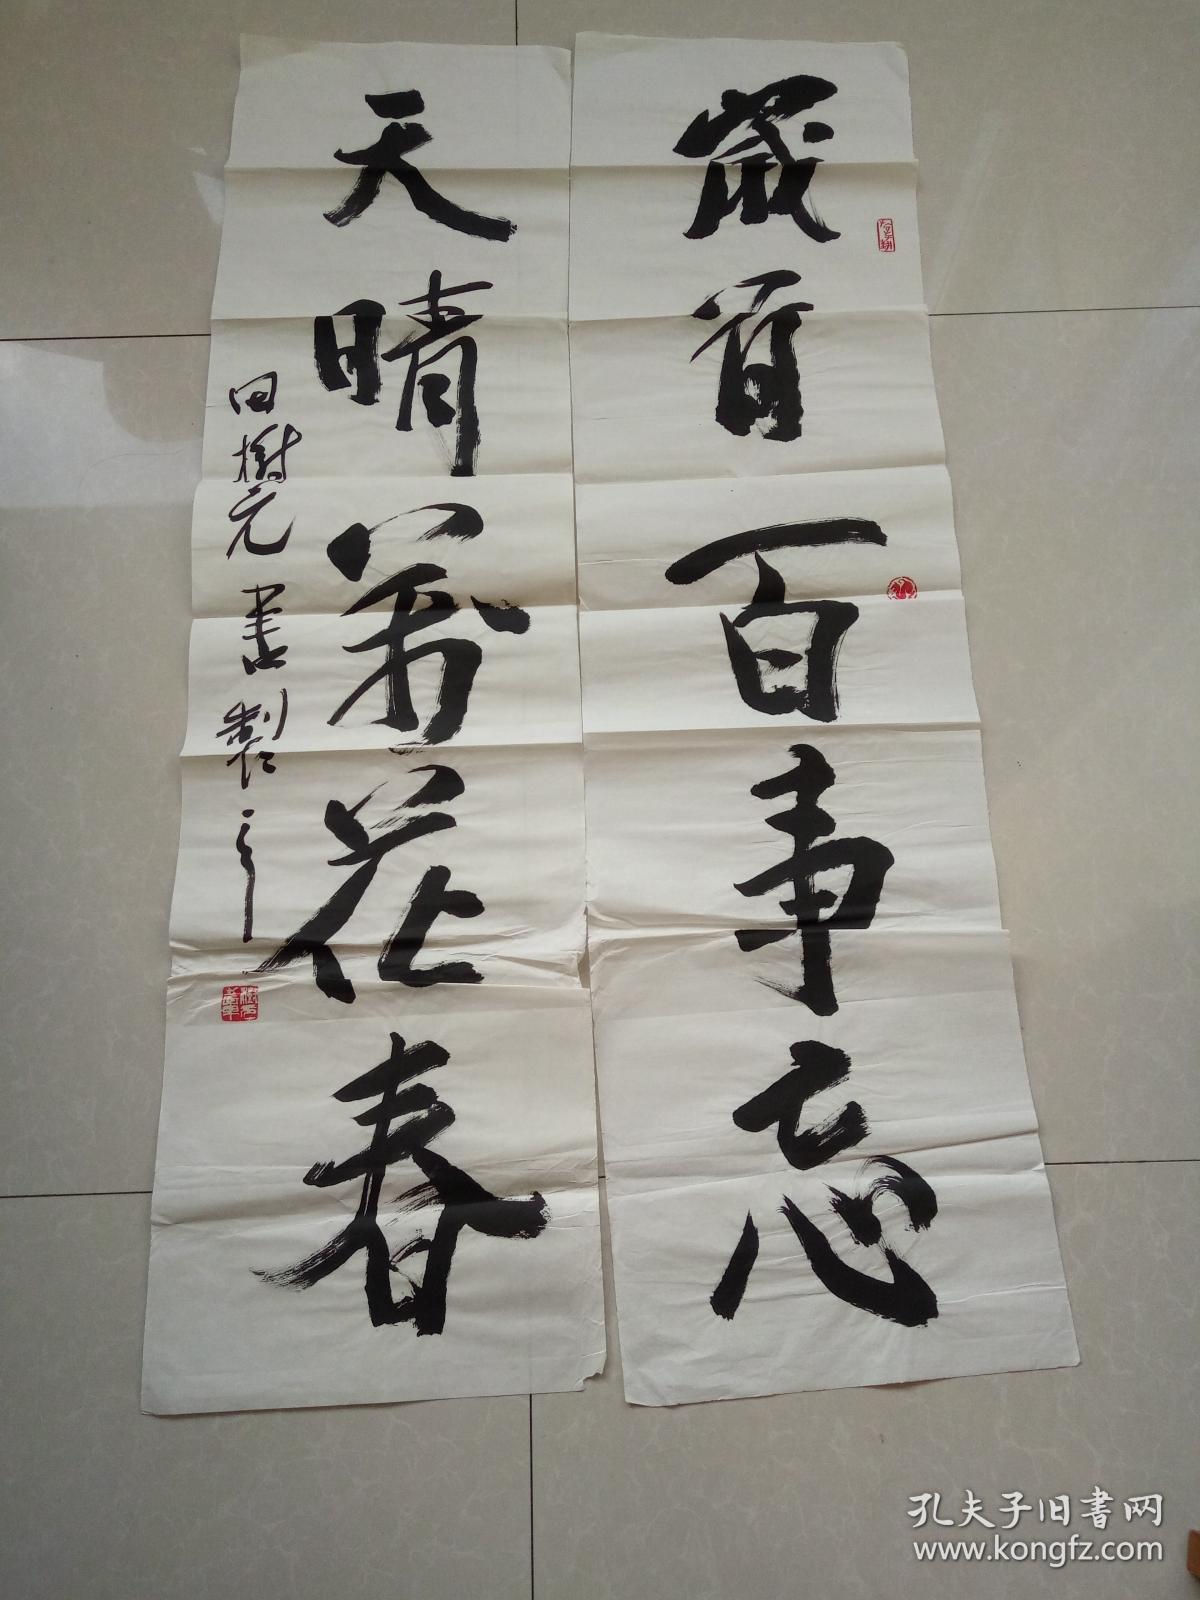 歲首百事忘
天晴萬花春
田樹元書製
孔夫子旧书网
www.kongfz.com